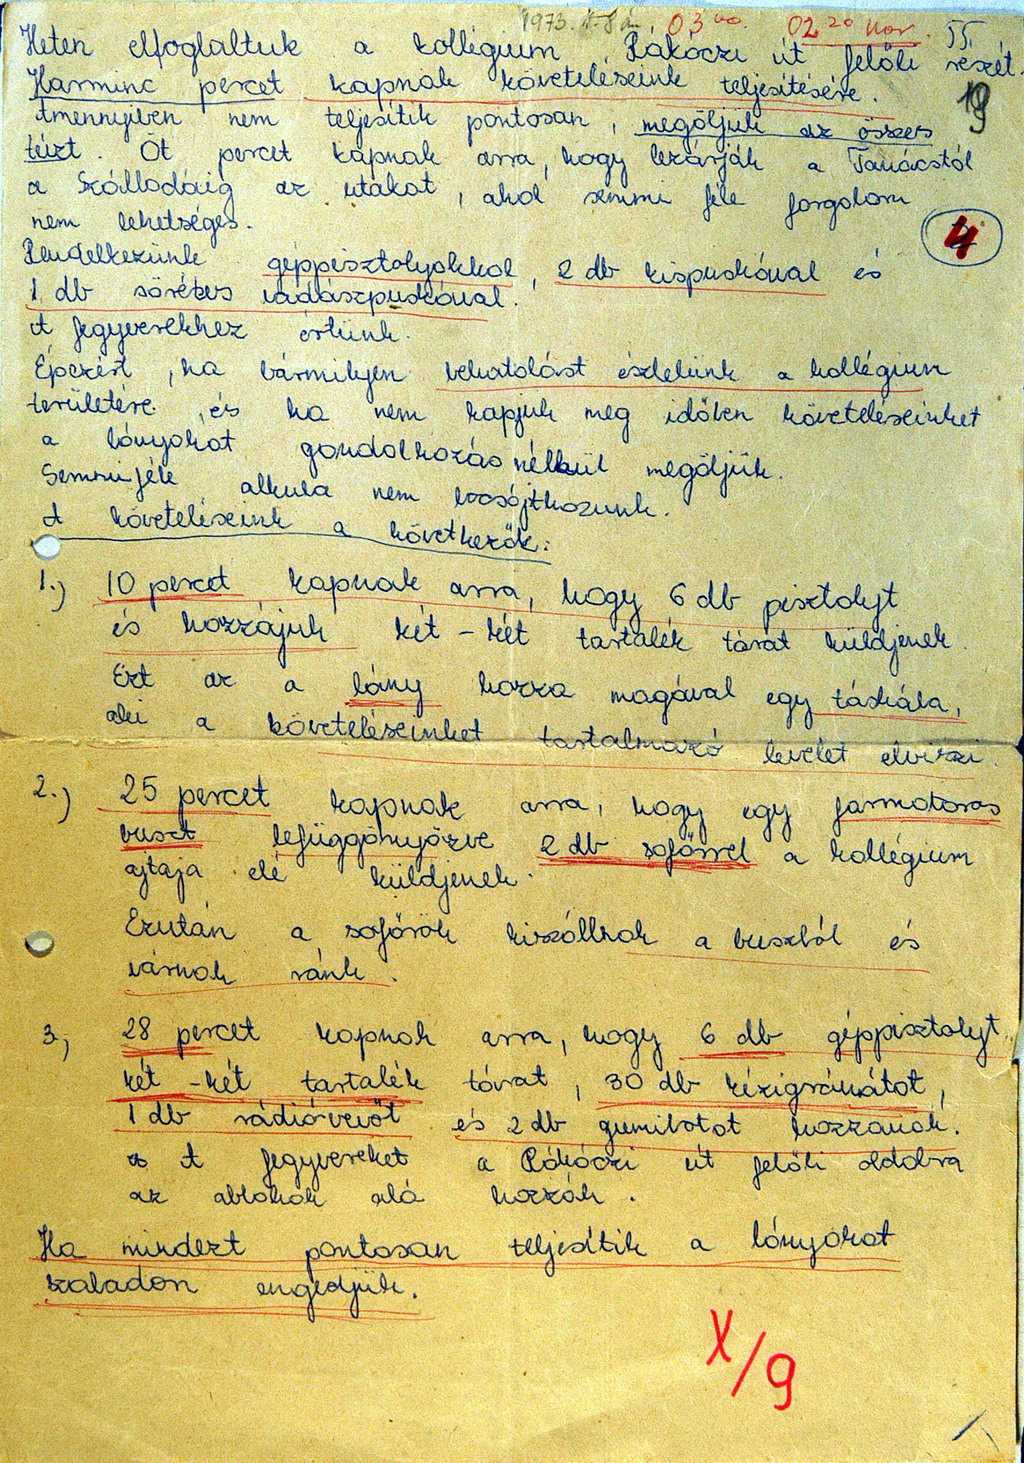 1973. 03 00 02 20 kor. 55.
Heten elfoglaltuk a kollégium Rákóczi út felöli részét.
Harminc percet kapnak követeléseink teljesítésére. 19
Amennyiben nem teljesítik pontosan, megöljük az összes
túszt. Öt percet kapnak arra, hogy lezárják a Tanácstól
a Szállodáig az utakat, ahol semmi féle forgalom
nem lehetséges. 4
Rendelkezünk géppisztolyokkal, 2 db kispuskával és
1 db sörétes vadászpuskával.
A fegyverekhez értünk.
Épezért, ha bármilyen behatolást észlelünk a kollégium
területére és ha nem kapjuk meg időben követeléseinket
a lányokat gondolkozás nélkül megöljük.
Semmiféle alkuba nem bocsájtkozunk.
A követeléseink a következők:
1.) 10 percet kapnak arra, hogy 6 db pisztolyt
és hozzájuk két-két tartalék tárat küldjenek.
Ezt az a lány hozza magával egy táskába,
aki a követeléseinket tartalmazó levelet elviszi.
2.) 25 percet kapnak arra, hogy egy farmotoros
buszt lefüggönyözve 2 db sofőrrel a kollégium
ajtaja elé küldjenek.
Ezután a sofőrök kiszállnak a buszból és
várnak ránk.
3, 28 percet kapnak arra, hogy 6 db géppisztolyt
két-két tartalék tárat, 30 db kézigránátot,
1 db rádióvevőt és 2 db gumibotot hozzanak.
A fegyvereket a Rákóczi út felöli oldalra
az ablakok alá hozzák.
Ha mindezt pontosan teljesítik a lányokat
szabadon engedjük.
X/9